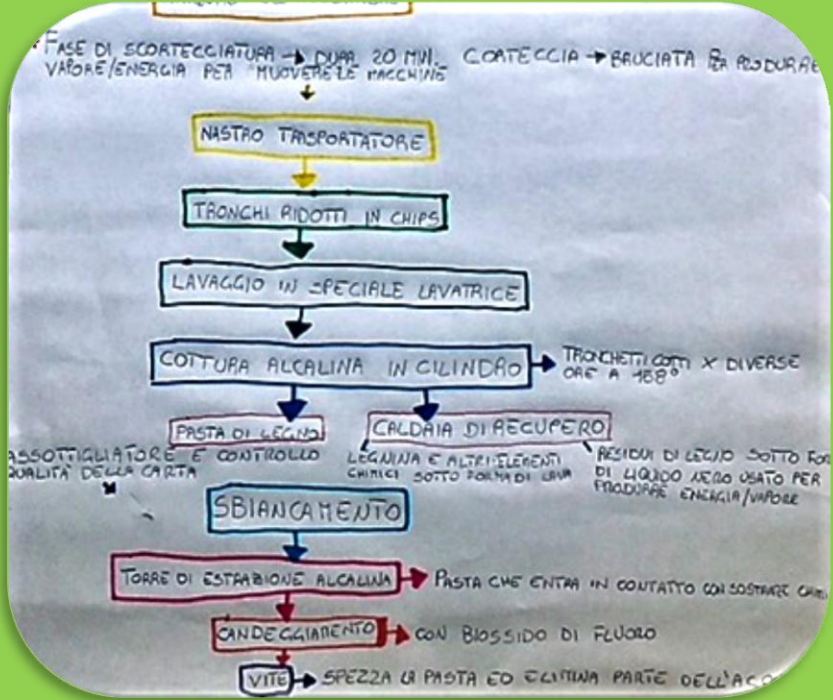 FASE DI SCORTECCIATURA → DURA 20 MIN. CORTECCIA → BRUCIATA PER PRODURRE
VAPORE/ENERGIA PER MUOVERE LE MACCHINE
NASTRO TRASPORTATORE
TRONCHI RIDOTTI IN CHIPS
LAVAGGIO IN SPECIALE LAVATRICE
COTTURA ALCALINA IN CILINDRO → TRONCHETTI COTTI X DIVERSE
ORE A 168°
PASTA DI LEGNO
ASSOTTIGLIATORE E CONTROLLO
QUALITÀ DELLA CARTA
CALDAIA DI RECUPERO
LEGNINA E ALTRI ELEMENTI
CHIMICI SOTTO FORMA DI LAVA
RESIDUI DI LEGNO SOTTO FOR
DI LIQUIDO NERO USATO PER
PRODURRE ENERGIA/VAPORE
SBIANCAMENTO
TORRE DI ESTRAZIONE ALCALINA → PASTA CHE ENTRA IN CONTATTO CON
CANDEGGIAMENTO → CON BIOSSIDO DI FLUORO
VITE → SPEZZA LA PASTA ED ELIMINA PARTE